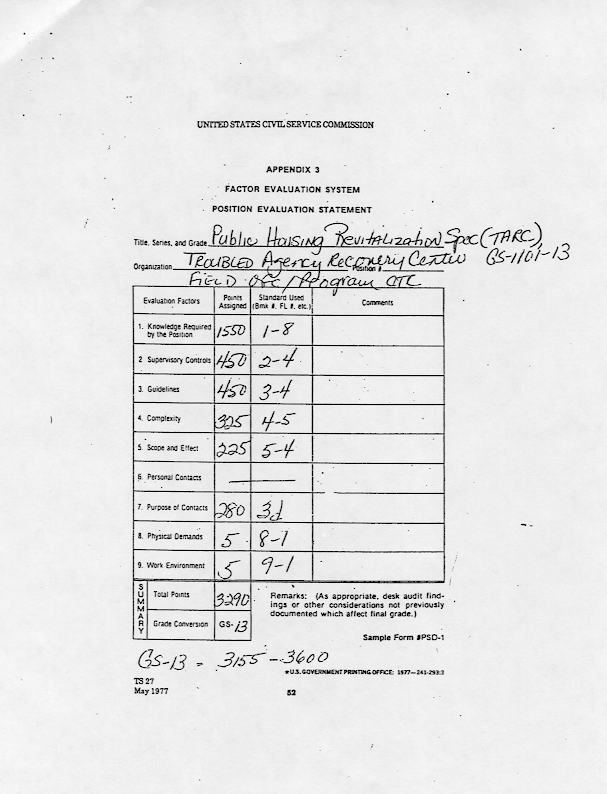 UNITED STATES CIVIL SERVICE COMMISSION
APPENDIX 3
FACTOR EVALUATION SYSTEM
POSITION EVALUATION STATEMENT
Title, Series, and Grade Public Housing Revitalization Spec (TARC),
Organization TROUBLED Agency Recovery Center GS-1101-13
Position #
FIELD OFC / Program CTC
Evaluation Factors Points Assigned Standard Used (Bmk #, FL #, etc.) Comments
1. Knowledge Required by the Position 1550 1-8
2 Supervisory Controls 450 2-4
3. Guidelines 450 3-4
4. Complexity 325 4-5
5. Scope and Effect 225 5-4
6. Personal Contacts —
7. Purpose of Contacts 280 3d
8. Physical Demands 5 8-1
9. Work Environment 5 9-1
SUMMARY
Total Points 3290
Grade Conversion GS-13
Remarks: (As appropriate, desk audit find-
ings or other considerations not previously
documented which affect final grade.)
Sample Form #PSD-1
GS-13 = 3155-3600
★U.S. GOVERNMENT PRINTING OFFICE: 1977-241-293:2
TS 27
May 1977
52